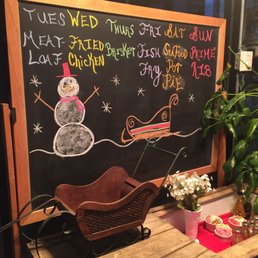 TUES WED THURS FRI SAT SUN
MEAT- FRIED BRISKET FISH SEAFOOD PRIME
LOAF CHICKEN FRY POT RIB
PIE